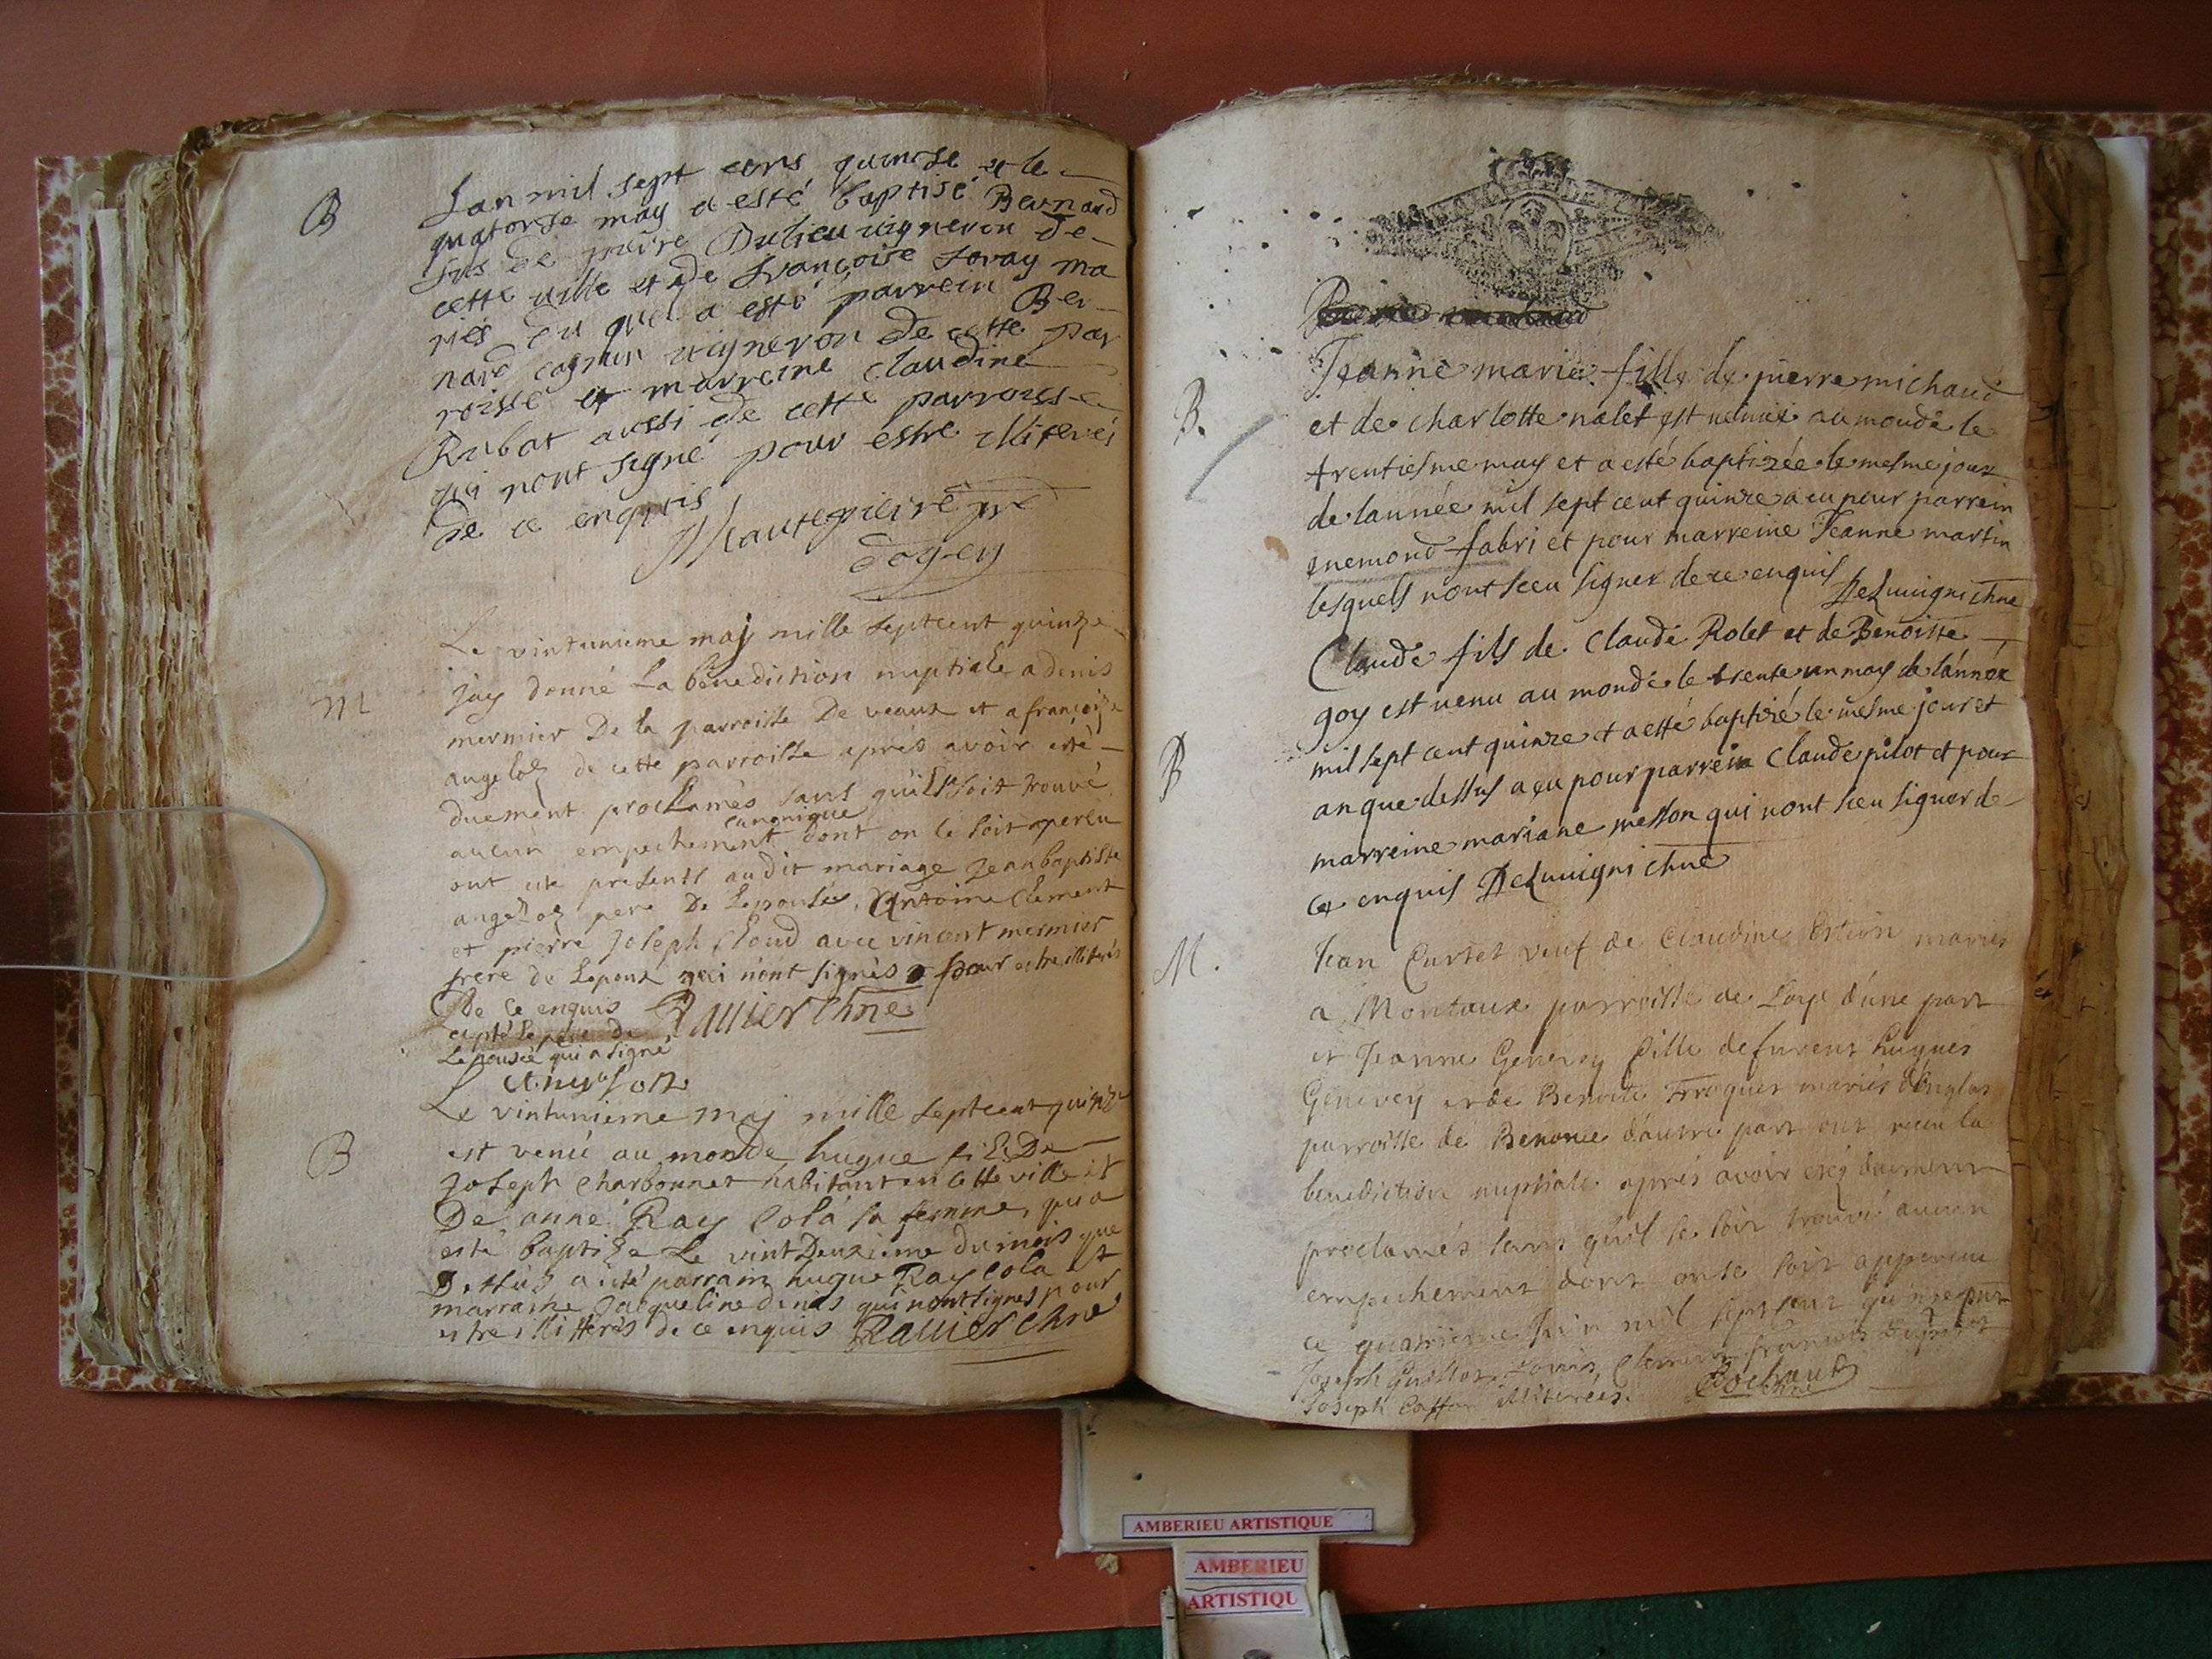 B
Lan mil sept cens quinse et le
quatorse may a esté baptisé Bernard
fils de pierre Dulieu vigneron de
cette ville et de françoise Savay ma
riés du quel a esté parrein Ber
nard cagnin vigneron de cette par
roisse et marreine claudine
Rubat aussi de cette parroisse
qui nont signé pour estre illiterés
de ce enquis
Mautepierre pre
doyen
M
Le vintunieme maj mille septcent quinze
jay donné La benediction nuptiale a denis
mermier De la parroisse De veaux et a françoise
angeloz de cette parroisse aprés avoir esté
duement proclamés sans quil se soit trouvé
canonique
aucun empechement dont on se soit aperçu
ont esté presents audit mariage Jean baptiste
angeloz pere De Lepousée, Antoine Clement
et pierre Joseph Cloud avec vincent mermier
frere de Lepoux qui nont signés pour estre illiterés
De ce enquis Ravier chne
excepté le pere de
Lepousée qui a signé
Angeloz
B
Le vintunieme maj mille septcent quinze
est venu au monde hugue fils De
Joseph Charbonnet habitant en cette ville et
De anne Ray Cola sa femme, qu a
esté baptisé Le vintDeuxieme du mois que
Dessus a esté parrain hugue Ray Cola et
marraine Jacqueline denis qui nont signés pour
estre illitterés de ce enquis Ravier chne
B.
Jeanne marie fille de pierre michaud
et de charlotte nalet est venue au monde le
trentiesme may et a esté baptizée le mesme jour
de lannée mil sept cent quinze a eu pour parrein
enemond fabri et pour marreine Jeanne martin
lesquels nont sceu signer de ce enquis Deluvigni chne
B
Claude fils de Claude Rolet et de Benoitte
goy est venu au monde le trente un may de lannée
mil sept cent quinze et a esté baptizé le mesme jour et
an que dessus a eu pour parrein Claude pilot et pour
marreine mariane messon qui nont sceu signer de
ce enquis Deluvigni chne
M.
Jean Curtet veuf de Claudine mariés
a Montaux parroisse de d'une part
et Jeanne Genevey fille de furent hugues
Genevey et de Benoite Troquer mariés
parroisse de Benonce d'autre part ont receu la
benediction nuptiale aprés avoir esté duement
proclamés sans qu'il se soit trouvé aucun
empechement dont on se soit apperceu
ce quatrieme Juin mil sept cent quinze
Joseph Guillot Louis Clement françois
Joseph illiterées. Bochard
chne
AMBERIEU ARTISTIQUE
AMBERIEU
ARTISTIQU